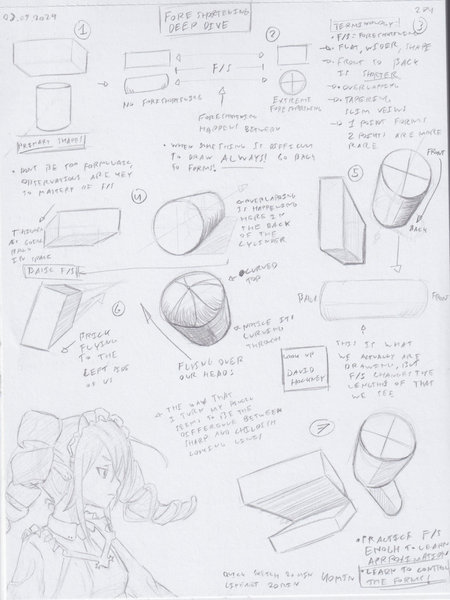 03.09.2024
FORESHORTENING
DEEP DIVE
2 PM
1
2
3
F/S
NO FORESHORTENING
EXTREME
FORESHORTENING
FORESHORTENING
HAPPENS BETWEEN
TERMINOLOGY
• F/S = FORESHORTENING
FLAT, WIDER, SHAPE
FRONT TO BACK
IS SHORTER
OVERLAPPING
TAPERING,
1 POINT FORMS
2 POINTS ARE MORE
RARE
PRIMARY SHAPES
• DONT BE TOO FORMULAIC,
OBSERVATIONS ARE KEY
TO MASTERY OF F/S
• WHEN SOMETHING IS DIFFICULT
TO DRAW ALWAYS! GO BACK
TO FORMS!
4
THINGS
GOING
BACK
IN SPACE
OVERLAPPING
IS HAPPENING
HERE IN
THE BACK
OF THE
CYLINDER
5
FRONT
BACK
BASIC F/S
6
BRICK
FLYING
TO THE
LEFT SIDE
OF US
CURVED
TOP
NOTICE ITS
CURVING
THROUGH
FLYING OVER
OUR HEADS
BACK
FRONT
THIS IS WHAT
WE ACTUALLY ARE
DRAWING, BUT
F/S CHANGES THE
LENGTHS OF THAT
WE SEE
LOOK UP
DAVID
HOCKNEY
THE WAY THAT
I TURN MY PENCIL
SEEMS TO BE THE
DIFFERENCE BETWEEN
SHARP AND CHILDISH
LOOKING LINES
7
• PRACTICE F/S
ENOUGH TO LEARN
APPROXIMATION!
• LEARN TO CONTROL
THE FORMS!
QUICK SKETCH 20 MIN
20 MIN
40 MIN